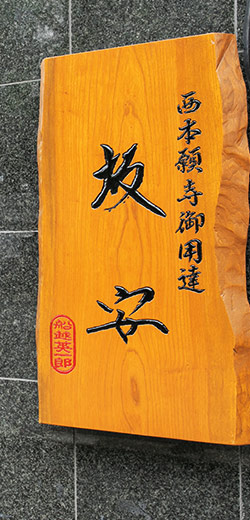 西本願寺御用達
坂安
船越英一郎